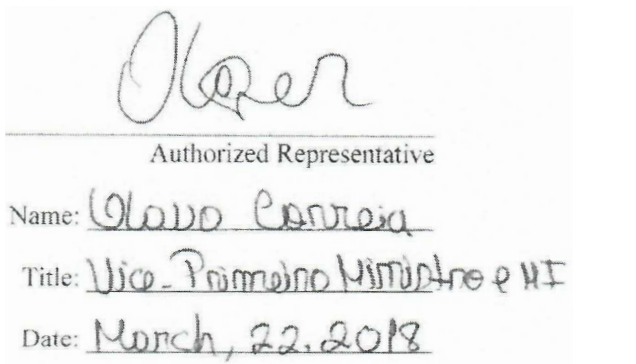 Authorized Representative
Name: Olavo Correia
Title: Vice-Primeiro Ministro e MF
Date: March, 22.2018